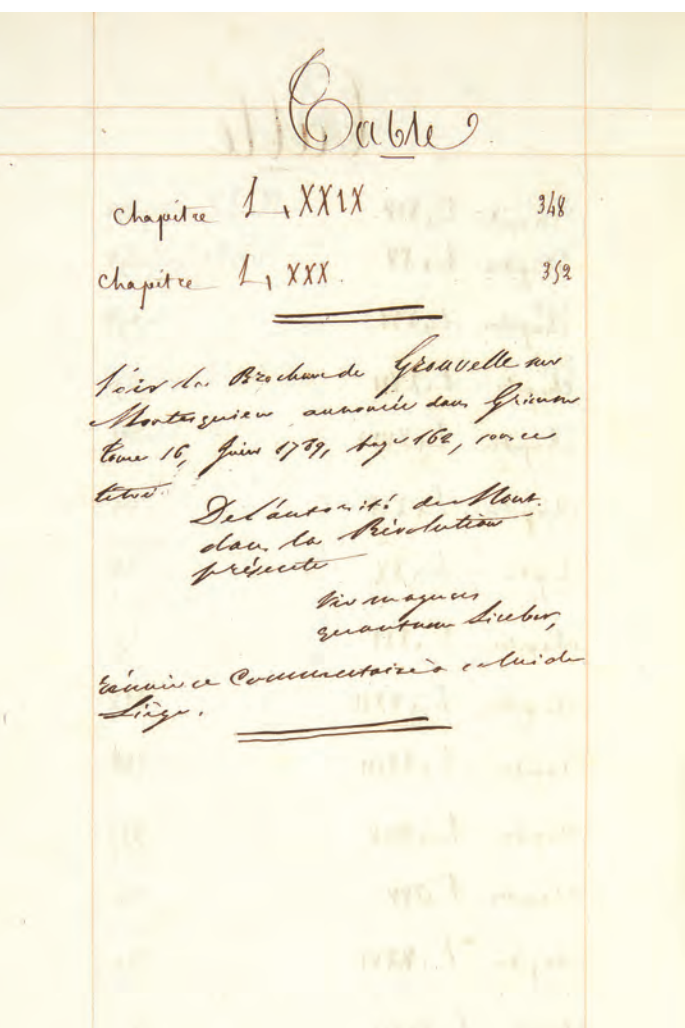 Table
Chapitre L, XXIX 348
Chapitre L, XXX. 352
Voir la Brochure de Grouvelle sur
Montesquieu annoncée dans Grimm
tome 16, Juin 1789, page 162, sous ce
titre:
De l'autorité de Mont.
dans la Révolution
présente
Vir magnus
quantum licebat,
réunir ce Commentaire à celui de
Liège.